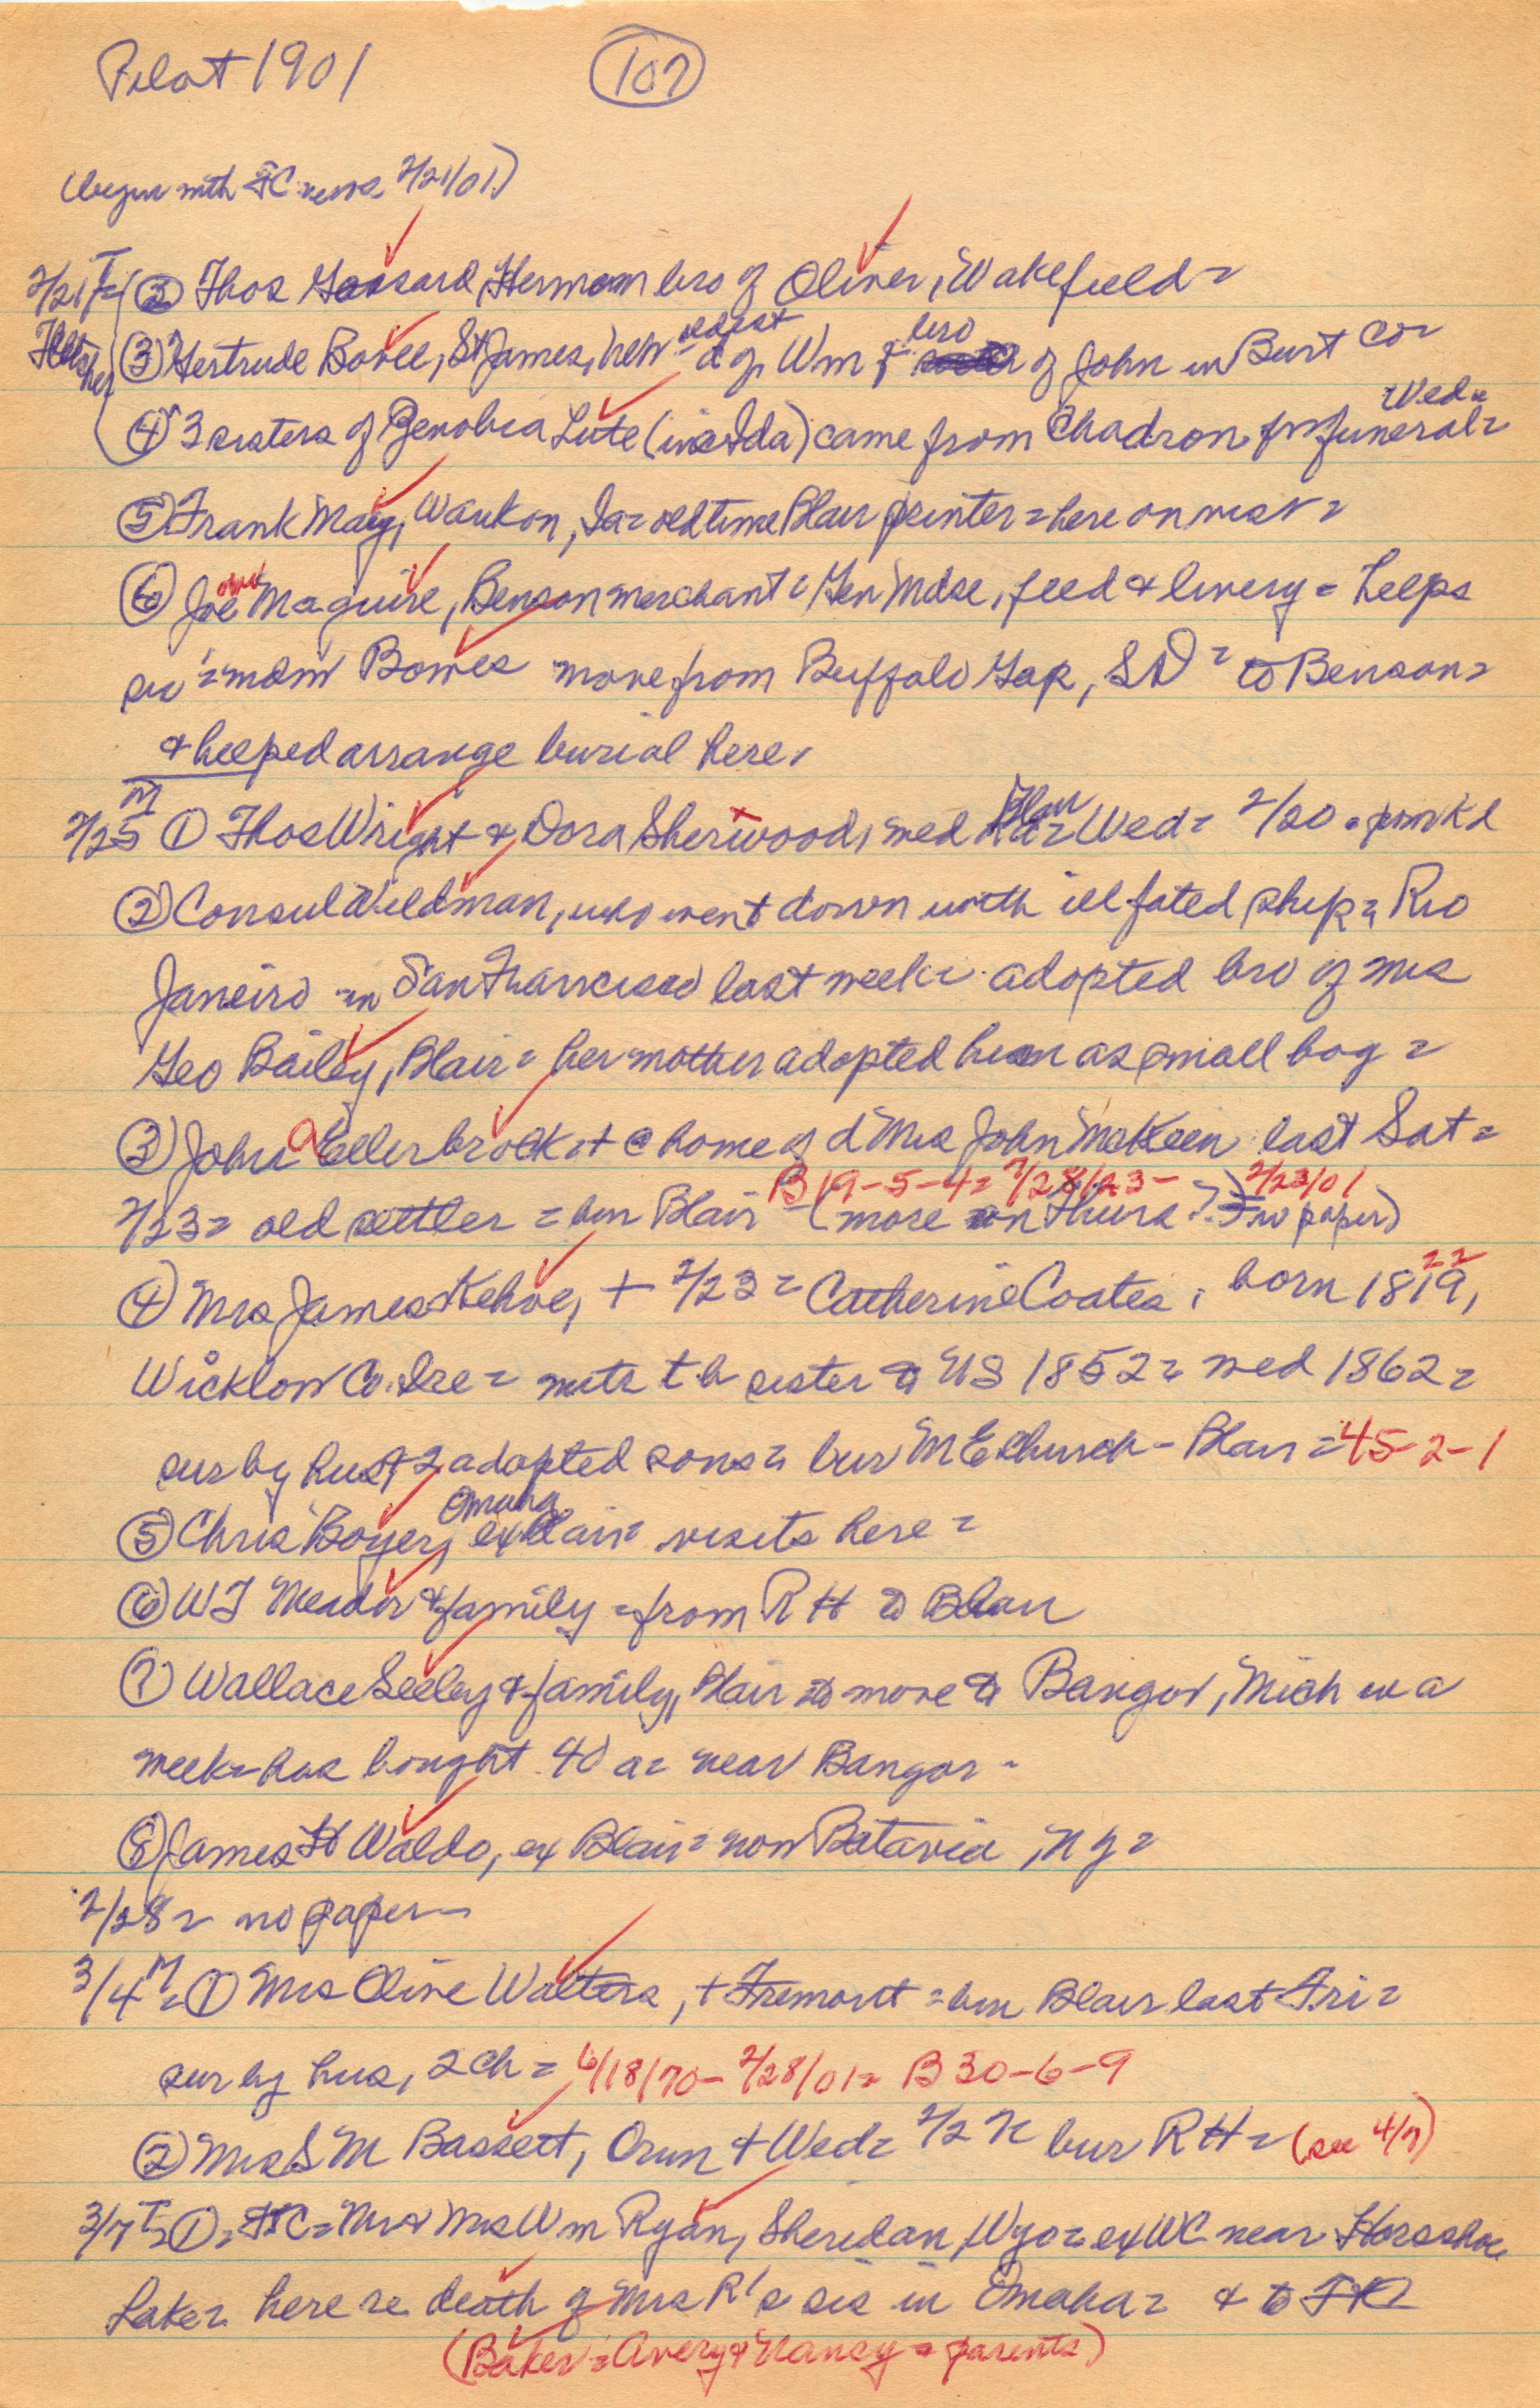 Pilot 1901 (107)
(begin with FC news 2/21/01)
2/21 T = (2) Thos Gossard, Herman bro of Oliver, Wakefield =
Fletcher (3) Gertrude Bovee, St James, Neb = eldest d of Wm & bro of John in Burt Co =
(4) 3 sisters of Zenobia Lute (inc Ida) came from Chadron for funeral = Wed =
(5) Frank May, Waukon, Ia = old time Blair printer = here on visit =
(6) Joe Maguire, Benson merchant = Gen Mdse, feed & livery = helps
Bowes move from Buffalo Gap, SD = to Benson =
& helped arrange burial here.
2/25 M (1) Thos Wright & Dora Sherwood, wed Blair = Wed = 2/20 =
(2) Consul Wildman, who went down with ill fated ship = Rio
Janeiro = in San Francisco last week = adopted bro of Mrs
Geo Bailey, Blair = her mother adopted him as small boy =
(3) John A Ellerbrock + @ home of d Mrs John McKeen last Sat =
B 19-5-4 = 2/23/01
2/23 = old settler = bur Blair (more on Thurs? = no paper)
(4) Mrs James Kehoe, + 2/23 = Catherine Coates, born 1819, 22
Wicklow Co. Ire = with t b sister to US 1852 = wed 1862 =
sur by hus & 2 adopted sons = bur ME Church - Blair = 45-2-1
(5) Chris Boyer, Omaha ex Blair = visits here =
(6) WJ Meador & family = from RH to Blair
(7) Wallace Seeley & family, Blair to move to Bangor, Mich in a
week = has bought 40 a = near Bangor -
(8) James H Waldo, ex Blair = now Batavia, NY =
2/28 = no paper -
3/4 M = (1) Mrs Olive Walters, + Fremont = bur Blair last Fri =
sur by hus, 2 ch = 6/18/70 - 2/28/01 = B 30-6-9
(2) Mrs S M Bassett, Orum + Wed = bur RH = (see 4/7)
3/7 T = (1) = FC = Mr & Mrs Wm Ryan, Sheridan, Wyo = ex WC near Horseshoe
Lake = here re death of Mrs R's sis in Omaha = & to
(Baker = Avery & Nancy = parents)